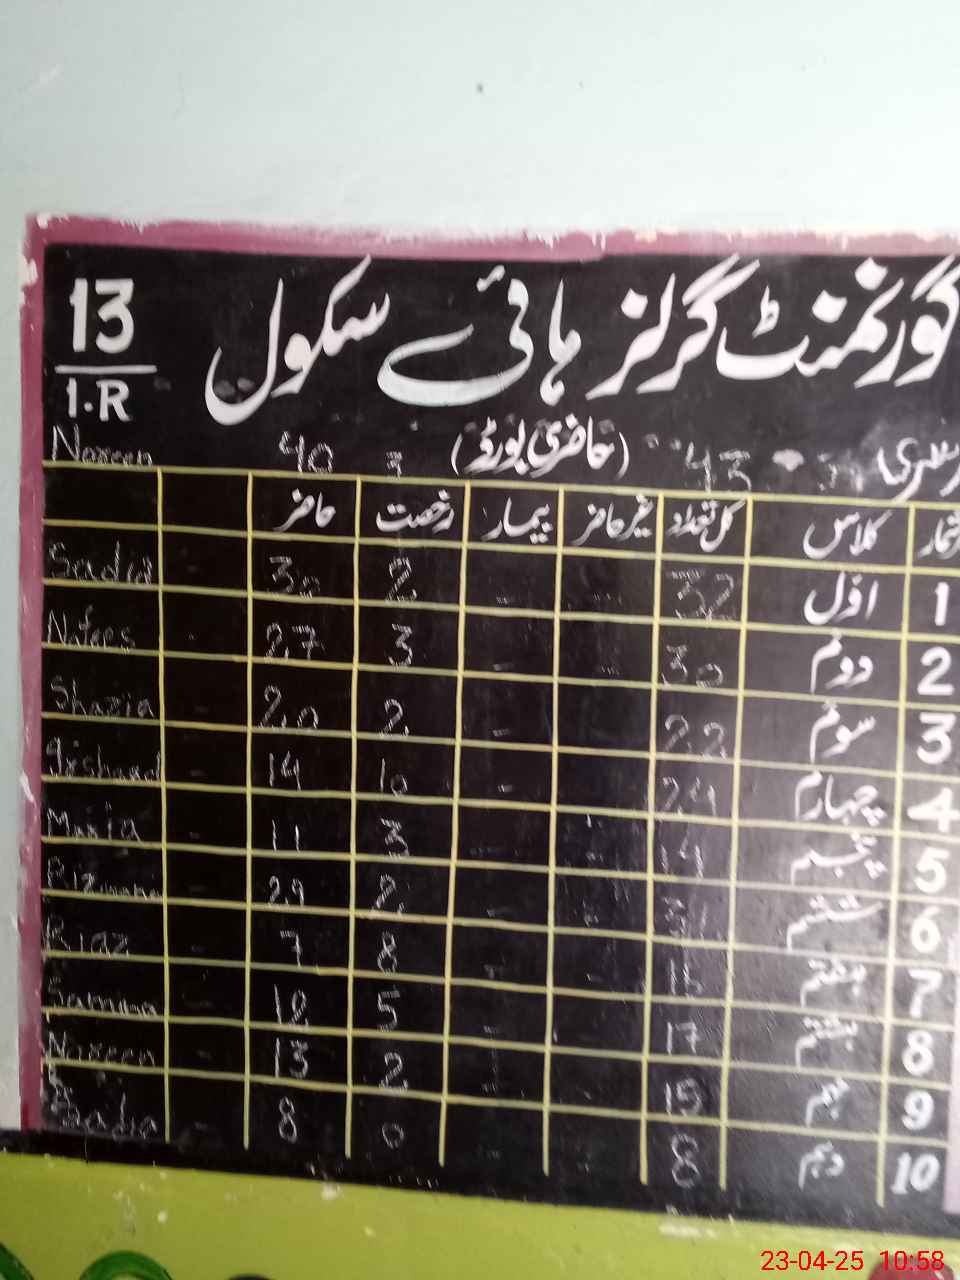 گورنمنٹ گرلز ہائی سکول 13
1.R
نرسری 43 (حاضری بورڈ) 3 40 Noreen
شمار کلاس کل تعداد غیر حاضر بیمار رخصت حاضر
1 اوّل 32 - - 2 30 Sadia
2 دوئم 30 - - 3 27 - Nafees
3 سوئم 22 - 2 20 - Shazia
4 چہارم 24 - 10 14 - Irshaad
5 پنجم 14 - - 3 11 - Maria
6 ششم 31 - - 2 29 - Rizwana
7 ہفتم 15 - - 8 7 Riaz
8 ہشتم 17 - 5 12 - Samina
9 نہم 15 - - 2 13 - Noreen
10 دہم 8 - 0 8 - Sadia
23-04-25 10:58